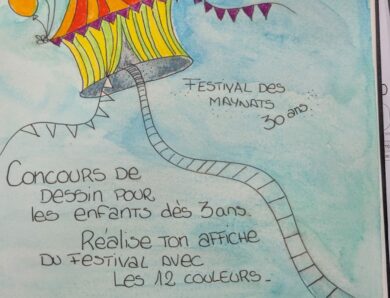 FESTIVAL DES
MAYNATS
30 ans
CONCOURS DE
DESSIN POUR
les enfants dès 3 ans.
Réalise ton affiche
DU FESTIVAL AVEC
Les 12 COULEURS_